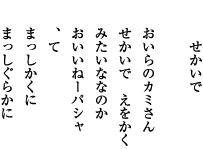 せかいで
おいらのカミさん
せかいで　えをかく
みたいななのか
おいいねーパシャ
、て
まっしかくに
まっしぐらかに